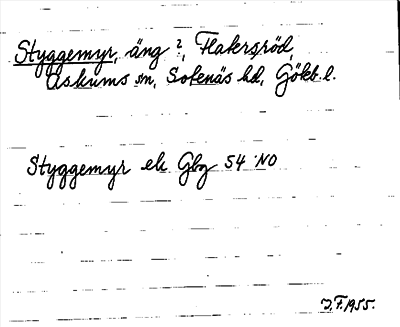 Styggemyr, äng ?, Flakeröd,
Askums sn, Sotenäs hd, Göteb. l.
Styggemyr ek Gbg 54 NO
J.F. 1955.